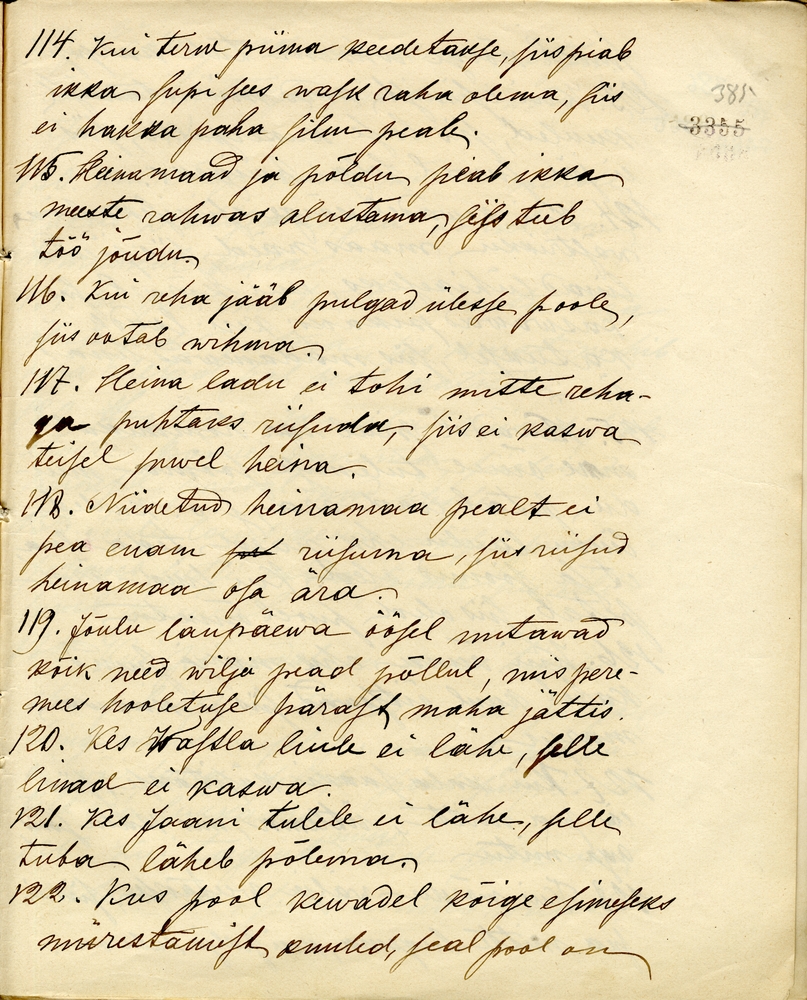 114. Kui terve piima keedetakse, siis piab
ikka supi sees wask raha olema, siis
ei hakka paha silm peale.
385
3355
115. Heinamaad ja põldu peab ikka
meeste rahwas alustama, siis teeb
töö jõudu.
116. Kui reha jääb pulgad ülesse poole,
siis ootab wihma.
117. Heina ladu ei tohi mitte reha-
ga puhtaks riisuda, siis ei kaswa
teisel suwel heina.
118. Niidetud heinamaa pealt ei
pea enam riisuma, siis riisud
heinamaa osa ära.
119. Jõulu laupäewa öösel nutawad
kõik need wilja pead põllul, mis pere-
mees hooletuse pärast maha jättis.
120. Kes Wastla liule ei lähe, selle
linad ei kaswa.
121. Kes Jaani tulele ei lähe, selle
tuba läheb põlema.
122. Kus pool kewadel kõige esimeseks
mürestamist kuuled, seal pool on